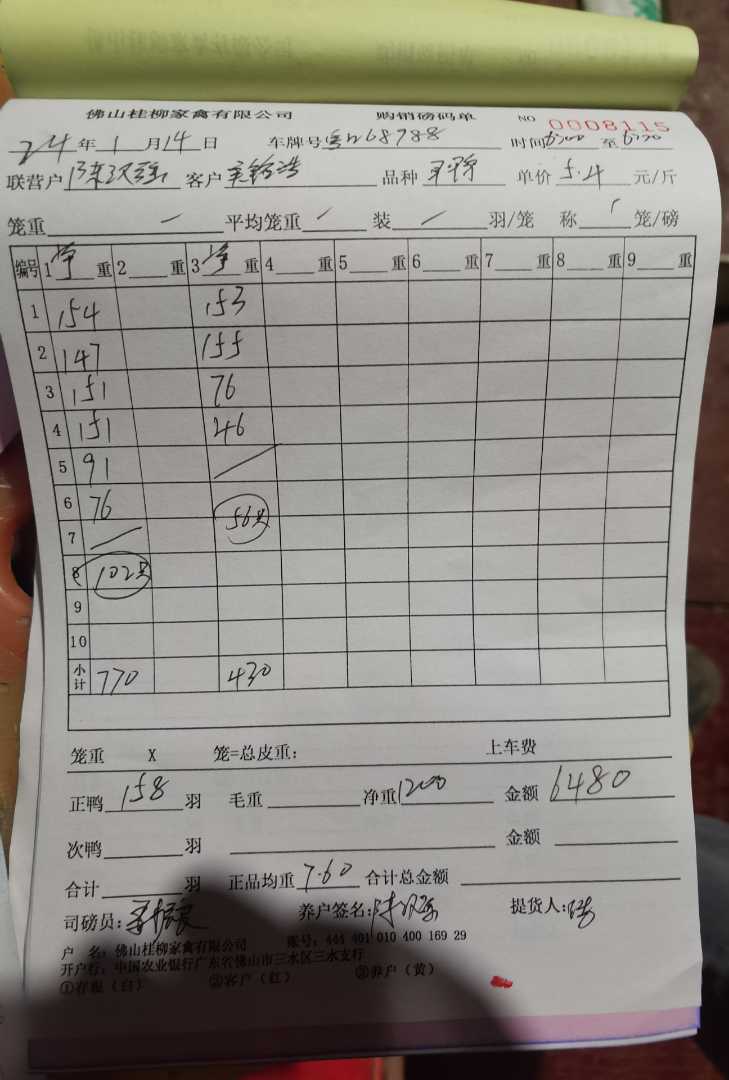 佛山桂柳家禽有限公司 购销磅码单 NO 0008115
24年1月14日 车牌号 68788 时间 至
联营户 客户 品种 单价5.4元/斤
笼重 — 平均笼重 — 装 — 羽/笼 称 笼/磅
编号 1净重 2 重 3净重 4 重 5 重 6 重 7 重 8 重 9 重
1 154 153
2 147 155
3 151 76
4 151 46
5 91 /
6 76
7 / 56只
8 102只
9
10
小计 770 430
笼重 X 笼=总皮重: 上车费
正鸭158羽 毛重 净重1200 金额6480
次鸭 羽 金额
合计 羽 正品均重7.60 合计总金额
司磅员: 养户签名: 提货人:
户 名: 佛山桂柳家禽有限公司 账号: 444 401 010 400 169 29
开户行: 中国农业银行广东省佛山市三水区三水支行
①存根(白) ②客户(红) ③养户(黄)